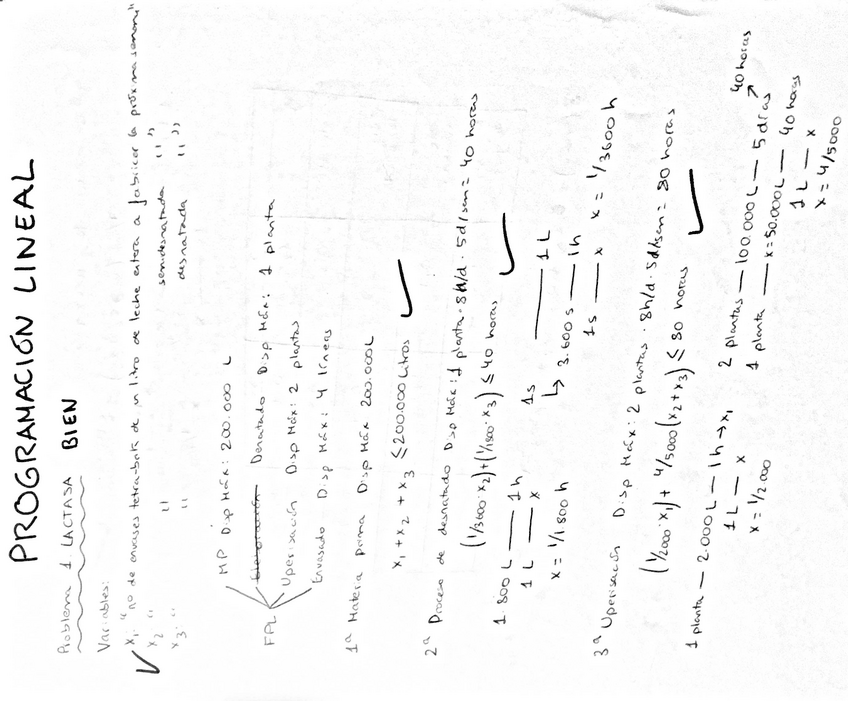 PROGRAMACIÓN LINEAL
Problema 1. LACTASA BIEN
Variables:
x₁: "nº de envases tetra-brik de un litro de leche entera a fabricar la próxima semana"
x₂: " " semidesnatada " "
x₃: " " desnatada " "
FPL
MP Disp Máx: 200.000 L
Desnatado Disp Máx: 1 planta
Uperisación Disp Máx: 2 plantas
Envasado Disp Máx: 4 líneas
1ª Materia prima Disp Máx 200.000L
x₁ + x₂ + x₃ ≤ 200.000 litros
2ª Proceso de desnatado Disp Máx: 1 planta · 8h/d · 5d/sem = 40 horas
(1/3600 · x₂) + (1/1800 · x₃) ≤ 40 horas
1.800 L — 1h
1 L — x
x = 1/1800 h
1s — 1 L
↳ 3.600s — 1h
1s — x x = 1/3600 h
3ª Uperisación Disp Máx: 2 plantas · 8h/d · 5d/sem = 80 horas
(1/2000 · x₁) + 4/5000 (x₂ + x₃) ≤ 80 horas
1 planta — 2.000L — 1h → x₁
1 L — x
x = 1/2.000
2 plantas — 100.000L — 5 días ↗ 40 horas
1 planta — x = 50.000L — 40 horas
1 L — x
x = 4/5000